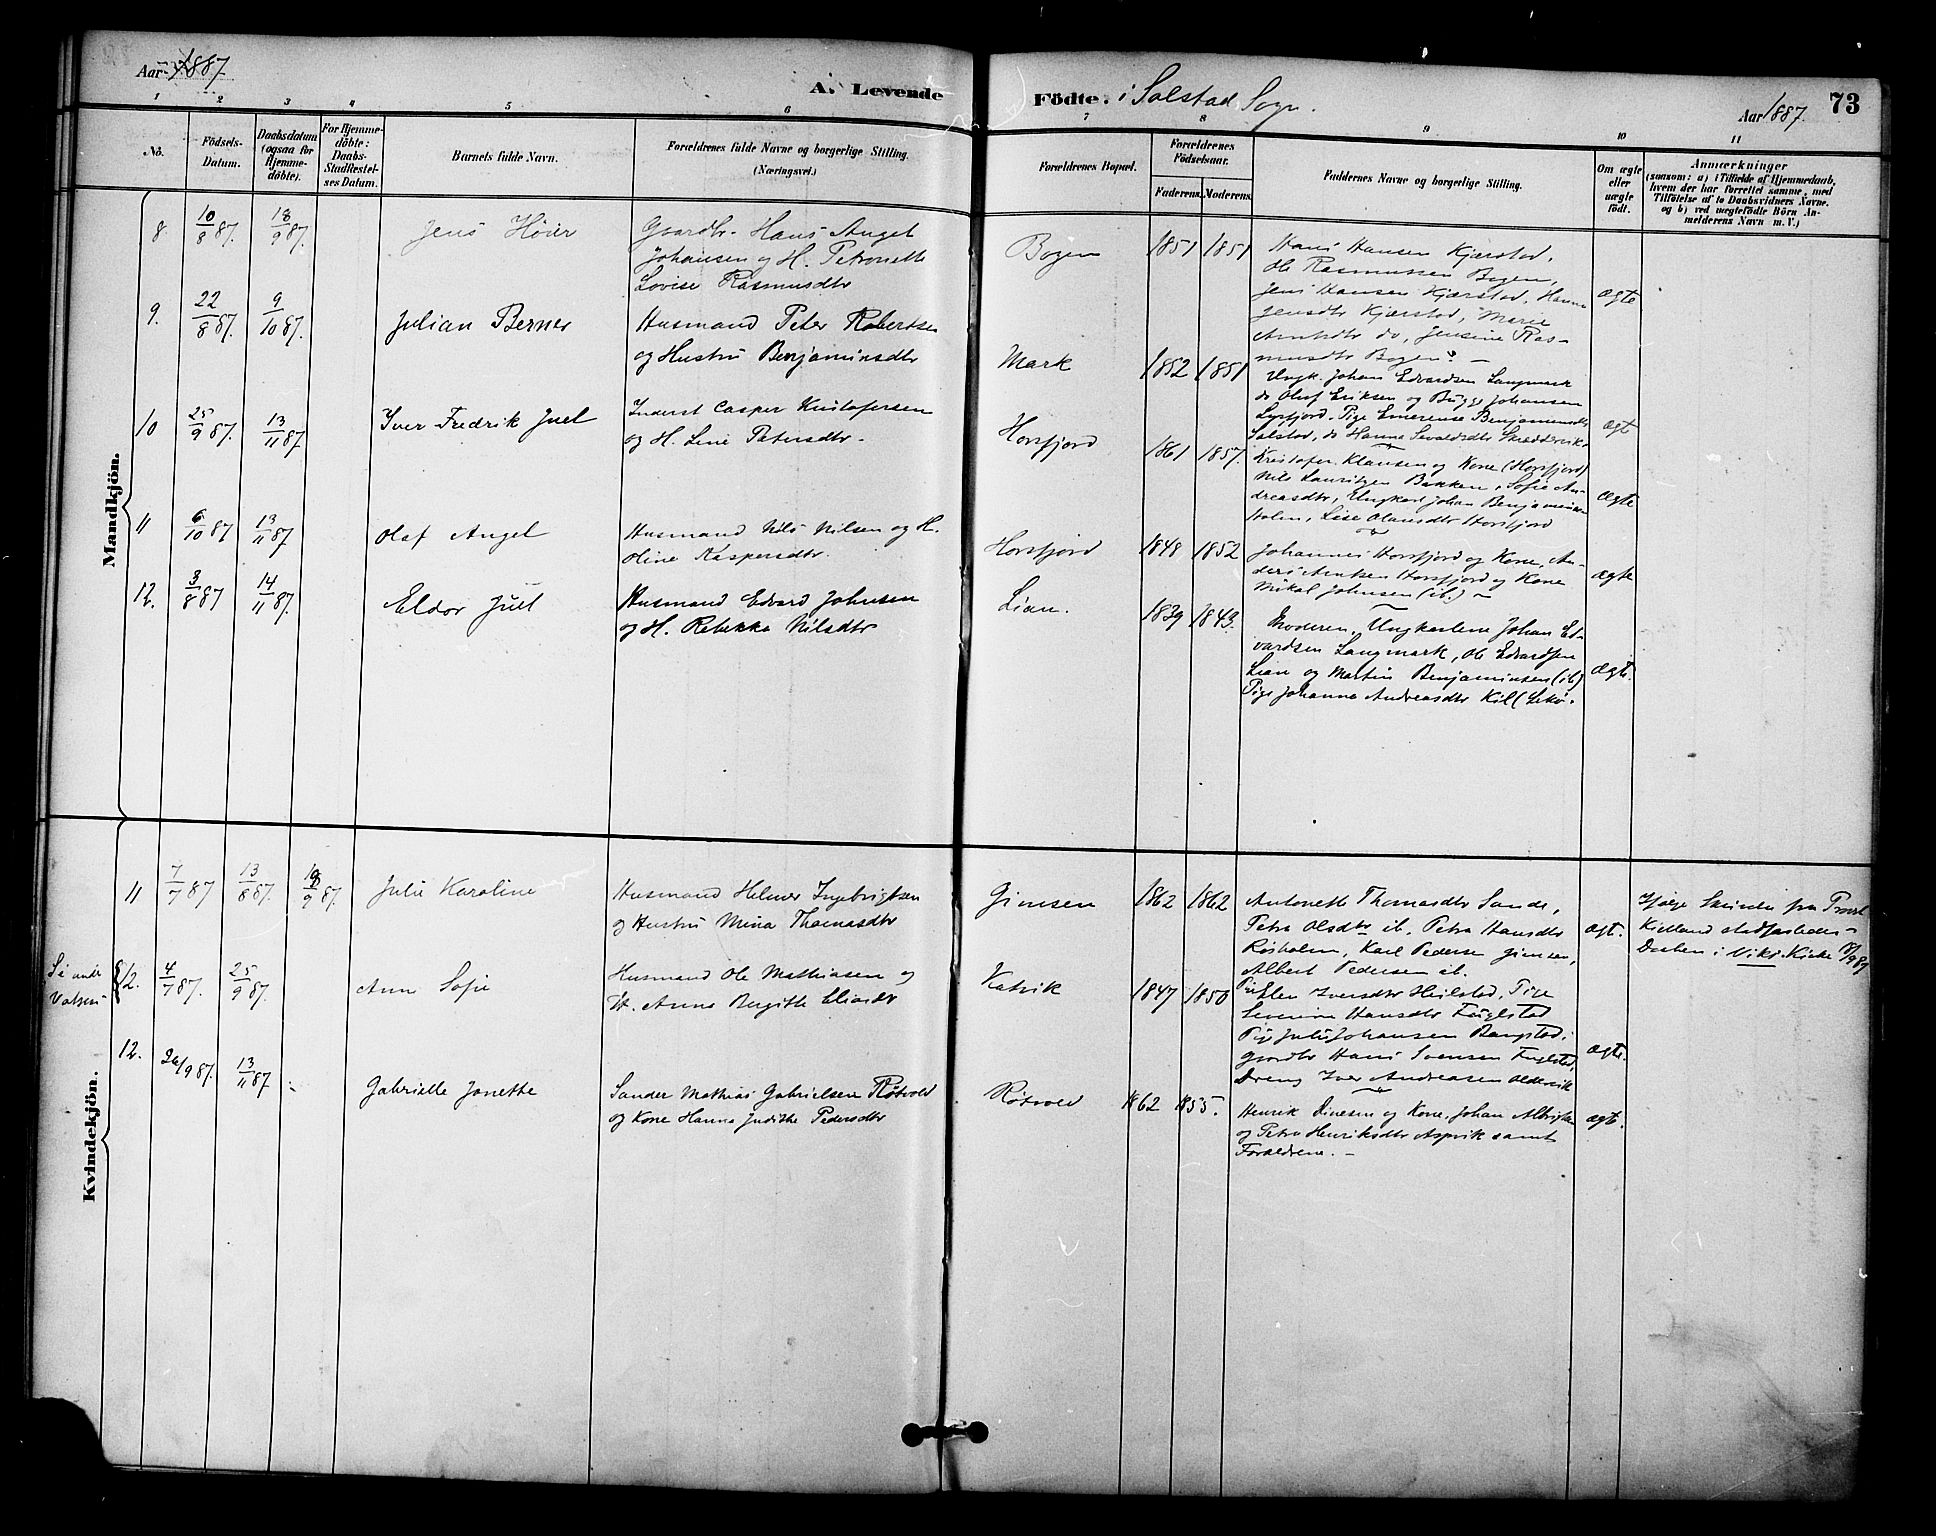 Aar 1887.
A. Levende
Födte. i Solstad Sogn.
Aar 1887.
73
1 2 3 4 5 6 7 8 9 10 11
No.
Födsels-
Datum.
Daabsdatum
(ogsaa for
Hjemme-
döbte).
For Hjemme-
döbte:
Daabs-
Stadfæstel-
ses Datum.
Barnets fulde Navn.
Forældrenes fulde Navne og borgerlige Stilling.
(Næringsvei.)
Forældrenes Bopæl.
Forældrenes
Födselsaar.
Faderens. Moderens.
Faddernes Navne og borgerlige Stilling.
Om ægte
eller
uægte
födt.
Anmærkninger
(saasom: a) i Tilfælde af Hjemmedaab,
hvem der har forrettet samme, med
Tilföielse af to Daabsvidners Navne.
og b) ved uægtefödte Börn An-
melderens Navn m. V.)
Mandkjön.
8. 10/8 87. 18/9 87. Jens Höier
Gaardbr. Hans Angel
Johansen og H. Petronelle
Lovise Rasmusdtr
Bogen 1851 1851
Hans Hansen Kjærstad,
Ole Rasmussen Bogen,
Jens Hansen Kjærstad, Hanna
Jensdtr Kjærstad, Marie
Arntsdtr do, Jensine Ras-
musdtr Bogen. —
ægte
9. 22/8 87. 9/10 87. Julian Berner
Husmand Peter Robertsen
og Hustru Benjaminsdtr
Mark 1852 1851
Ungk. Johan Edvardsen Langmark
do Oluf Eriksen og Bugge Johansen
Lysfjord. Pige Emerense Benjaminsdtr
Solstad, do Hanna Sevaldsdtr
ægt
10 25/9 87. 13/11 87. Iver Fredrik Juel
Inderst Casper Kristofersen
og H. Line Petersdtr.
Horsfjord 1861 1857.
Kristofer Klausen og Kone (Horsfjord)
Nils Lauritzen Bakken, Sofie An-
dreasdtr, Ungkarl Johan Benjaminsen
Holm, Lise Olausdtr Horsfjord
ægte
11 6/10 87 13/11 87 Olaf Angel
Husmand Nils Nilsen og H.
Oline Kaspersdtr.
Horsfjord 1848 1852
Johannes Horsfjord og Kone, An-
ders Arntsen Horsfjord og Kone
Nikal Johnsen (ib.) —
ægte
12. 3/8 87 14/11 87. Eldor Juel
Husmand Edvard Johnsen
og H. Rebekka Nilsdtr
Lian. 1839 1843.
Moderen, Ungkarlene Johan Ed-
vardsen Langmark, Ole Edvardsen
Lian og Martin Benjaminsen (ib)
Pige Johanna Andreasdtr Kil (Lekö.
ægte.
Kvindekjön.
11 7/7 87 13/8 87. 18/9 87. Julie Karoline
Husmand Helmer Ingebrigtsen
og Hustru Mina Thomasdtr
Gimsen 1862 1862
Antonette Thomasdtr Sande,
Petra Olsdtr ib. Petra Hansdtr
Rösholm, Karl Pedersen Gimsen,
Albert Pedersen ib.
ægt.
Ifølge Skrivelse fra Provst
Kielland stadfæstedes
Daaben i Viks Kirke 18/9 89
12. 4/7 87. 25/9 87. Ann Sofie
Husmand Ole Mathiasen og
H. Anna Birgitte Eliasdtr
Katvik 1847 1850
Ellen Iversdtr Heilstad, Pige
Severine Hansdtr Fuglstad
Pige Julie Johansen Bangstad.
Gaardbr Hans Svensen Fuglstad,
Dreng Iver Andreasen Oldervik
ægte.
12. 26/9 87. 13/11 87 Gabrielle Jonette
Sander Mathias Gabrielsen Rötvold
og Kone Hanna Judithe Pedersdtr
Rötvold 1862 1855.
Henrik Dinesen og Kone, Johan Albrigtsen
og Petra Henriksdtr Aspvik samt
Forældrene. —
ægt.